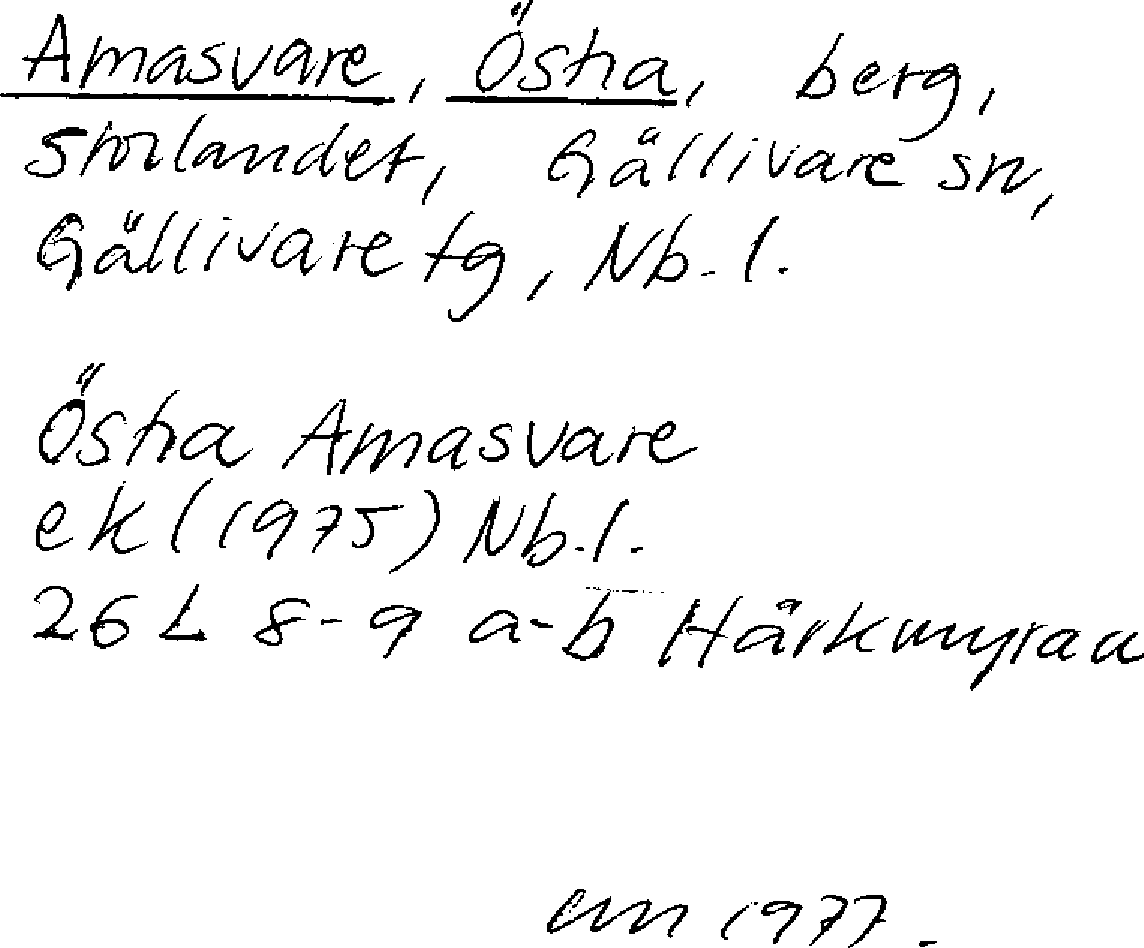 Amasvare, Östra, berg,
Storlandet, Gällivare sn,
Gällivare tg, Nb. l.
Östra Amasvare
ek (1975) Nb. l.
26 L 8-9 a-b Hårkmyran
1977.